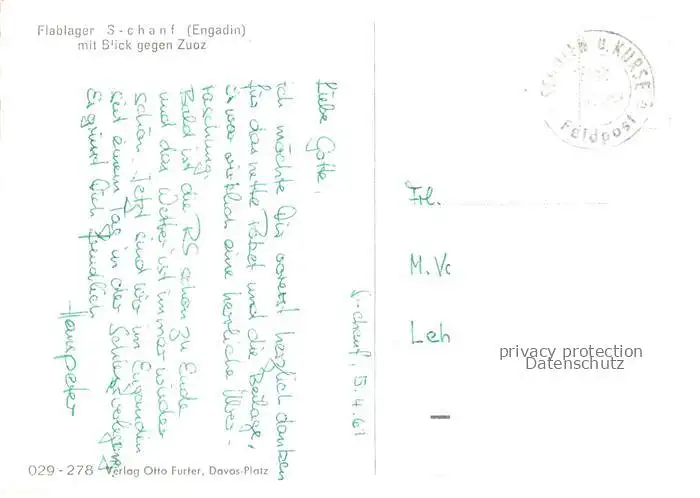 Flablager S-chanf (Engadin)
mit Blick gegen Zuoz
SCHULEN u. KURSE
Feldpost
S-chanf, 5.4.61
Liebe Gotte,
ich möchte Dir vorerst herzlich danken
für das nette Päckli und die Beilage,
Es war wirklich eine herrliche Über-
raschung.
Bald ist die RS schon zu Ende
und das Wetter ist immer wieder
schön. Jetzt sind wir im Engadin
seit einem Tag in der Schiessverlegung
Es grüsst Dich freundlich
Hanspeter
Frl.
M. Vo
Leh
privacy protection
Datenschutz
029-278 Verlag Otto Furter, Davos-Platz